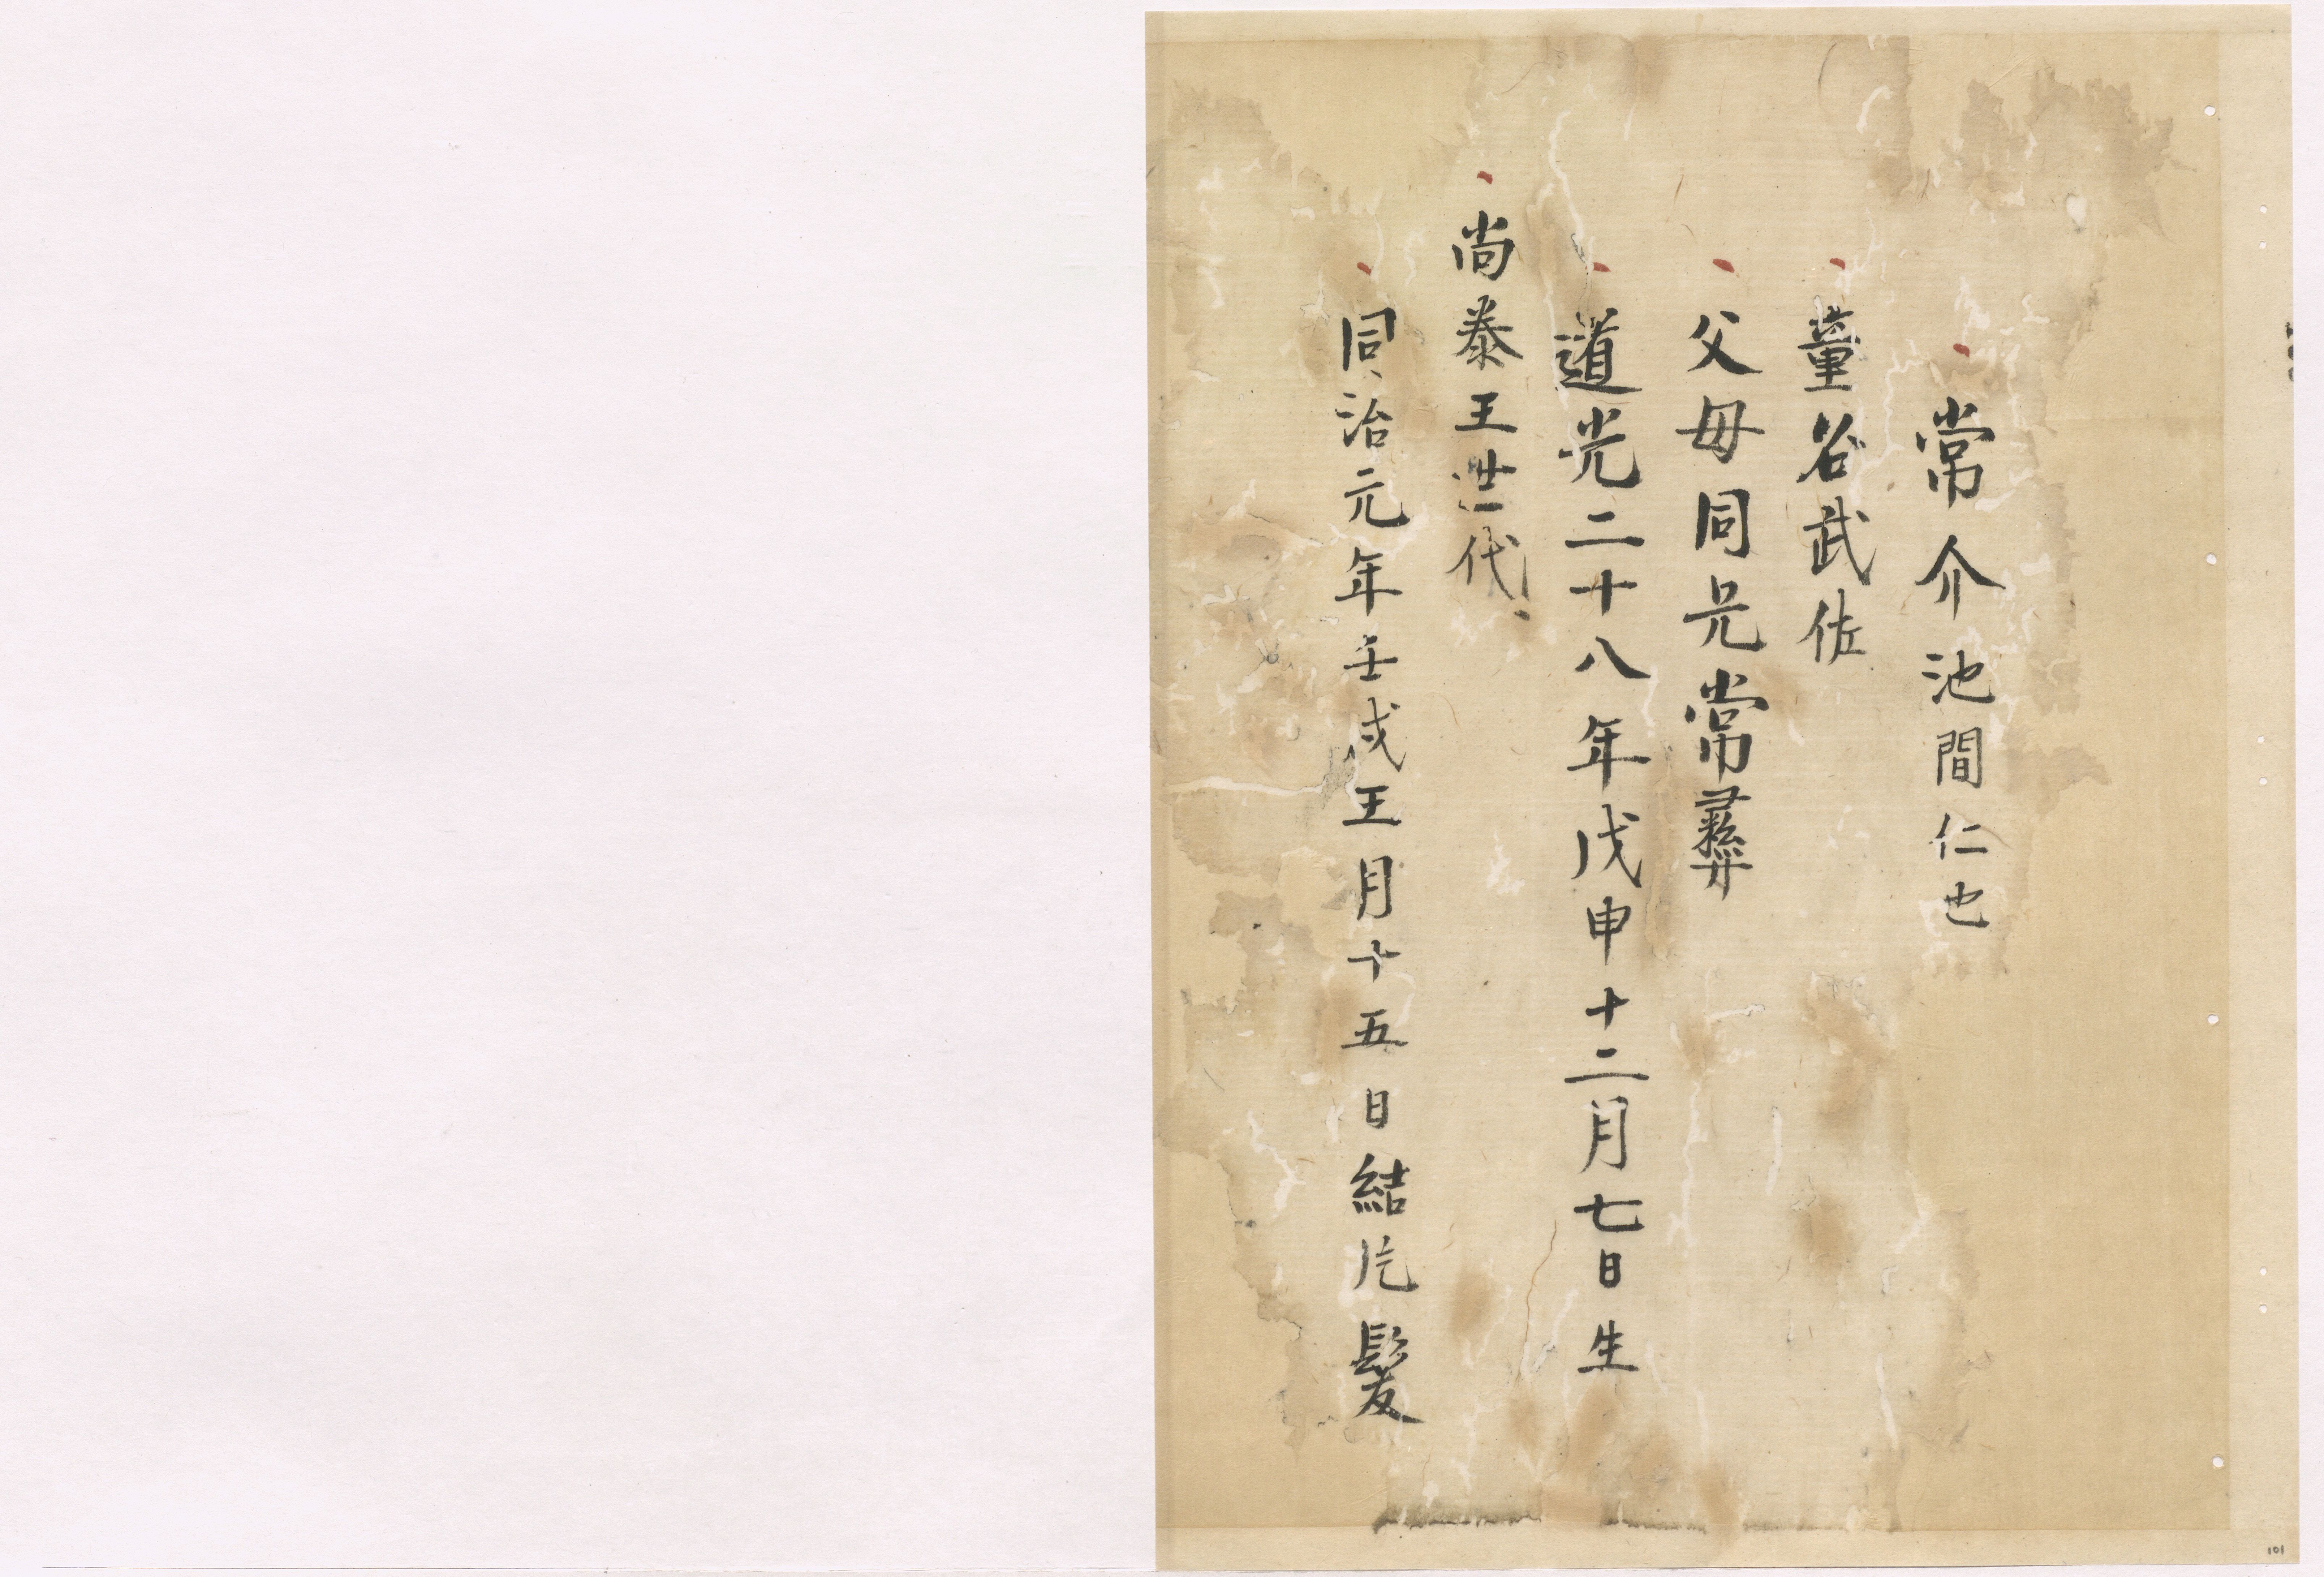 常介池間仁也
童名武佐
父母同兄常彛
道光二十八年戊申十二月七日生
尚泰王世代
同治元年壬戌王月十五日結片髪
101